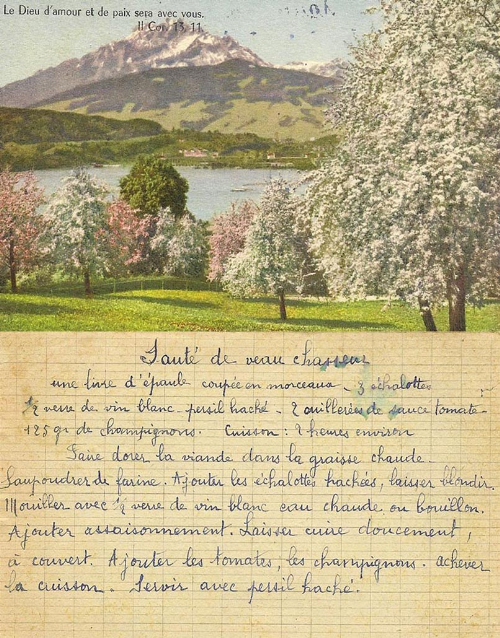 Le Dieu d'amour et de paix sera avec vous.
II Cor. 13. 11
Sauté de veau chasseur
une livre d'épaule coupée en morceaux - 3 échalottes
½ verre de vin blanc - persil haché - 2 cuillerées de sauce tomate -
125 gr de champignons. Cuisson : 2 heures environ
Faire dorer la viande dans la graisse chaude.
Saupoudrer de farine. Ajouter les échalottes hachées, laisser blondir.
Mouiller avec ½ verre de vin blanc eau chaude ou bouillon.
Ajouter assaisonnement. Laisser cuire doucement,
à couvert. Ajouter les tomates, les champignons. achever
la cuisson. Servir avec persil haché.